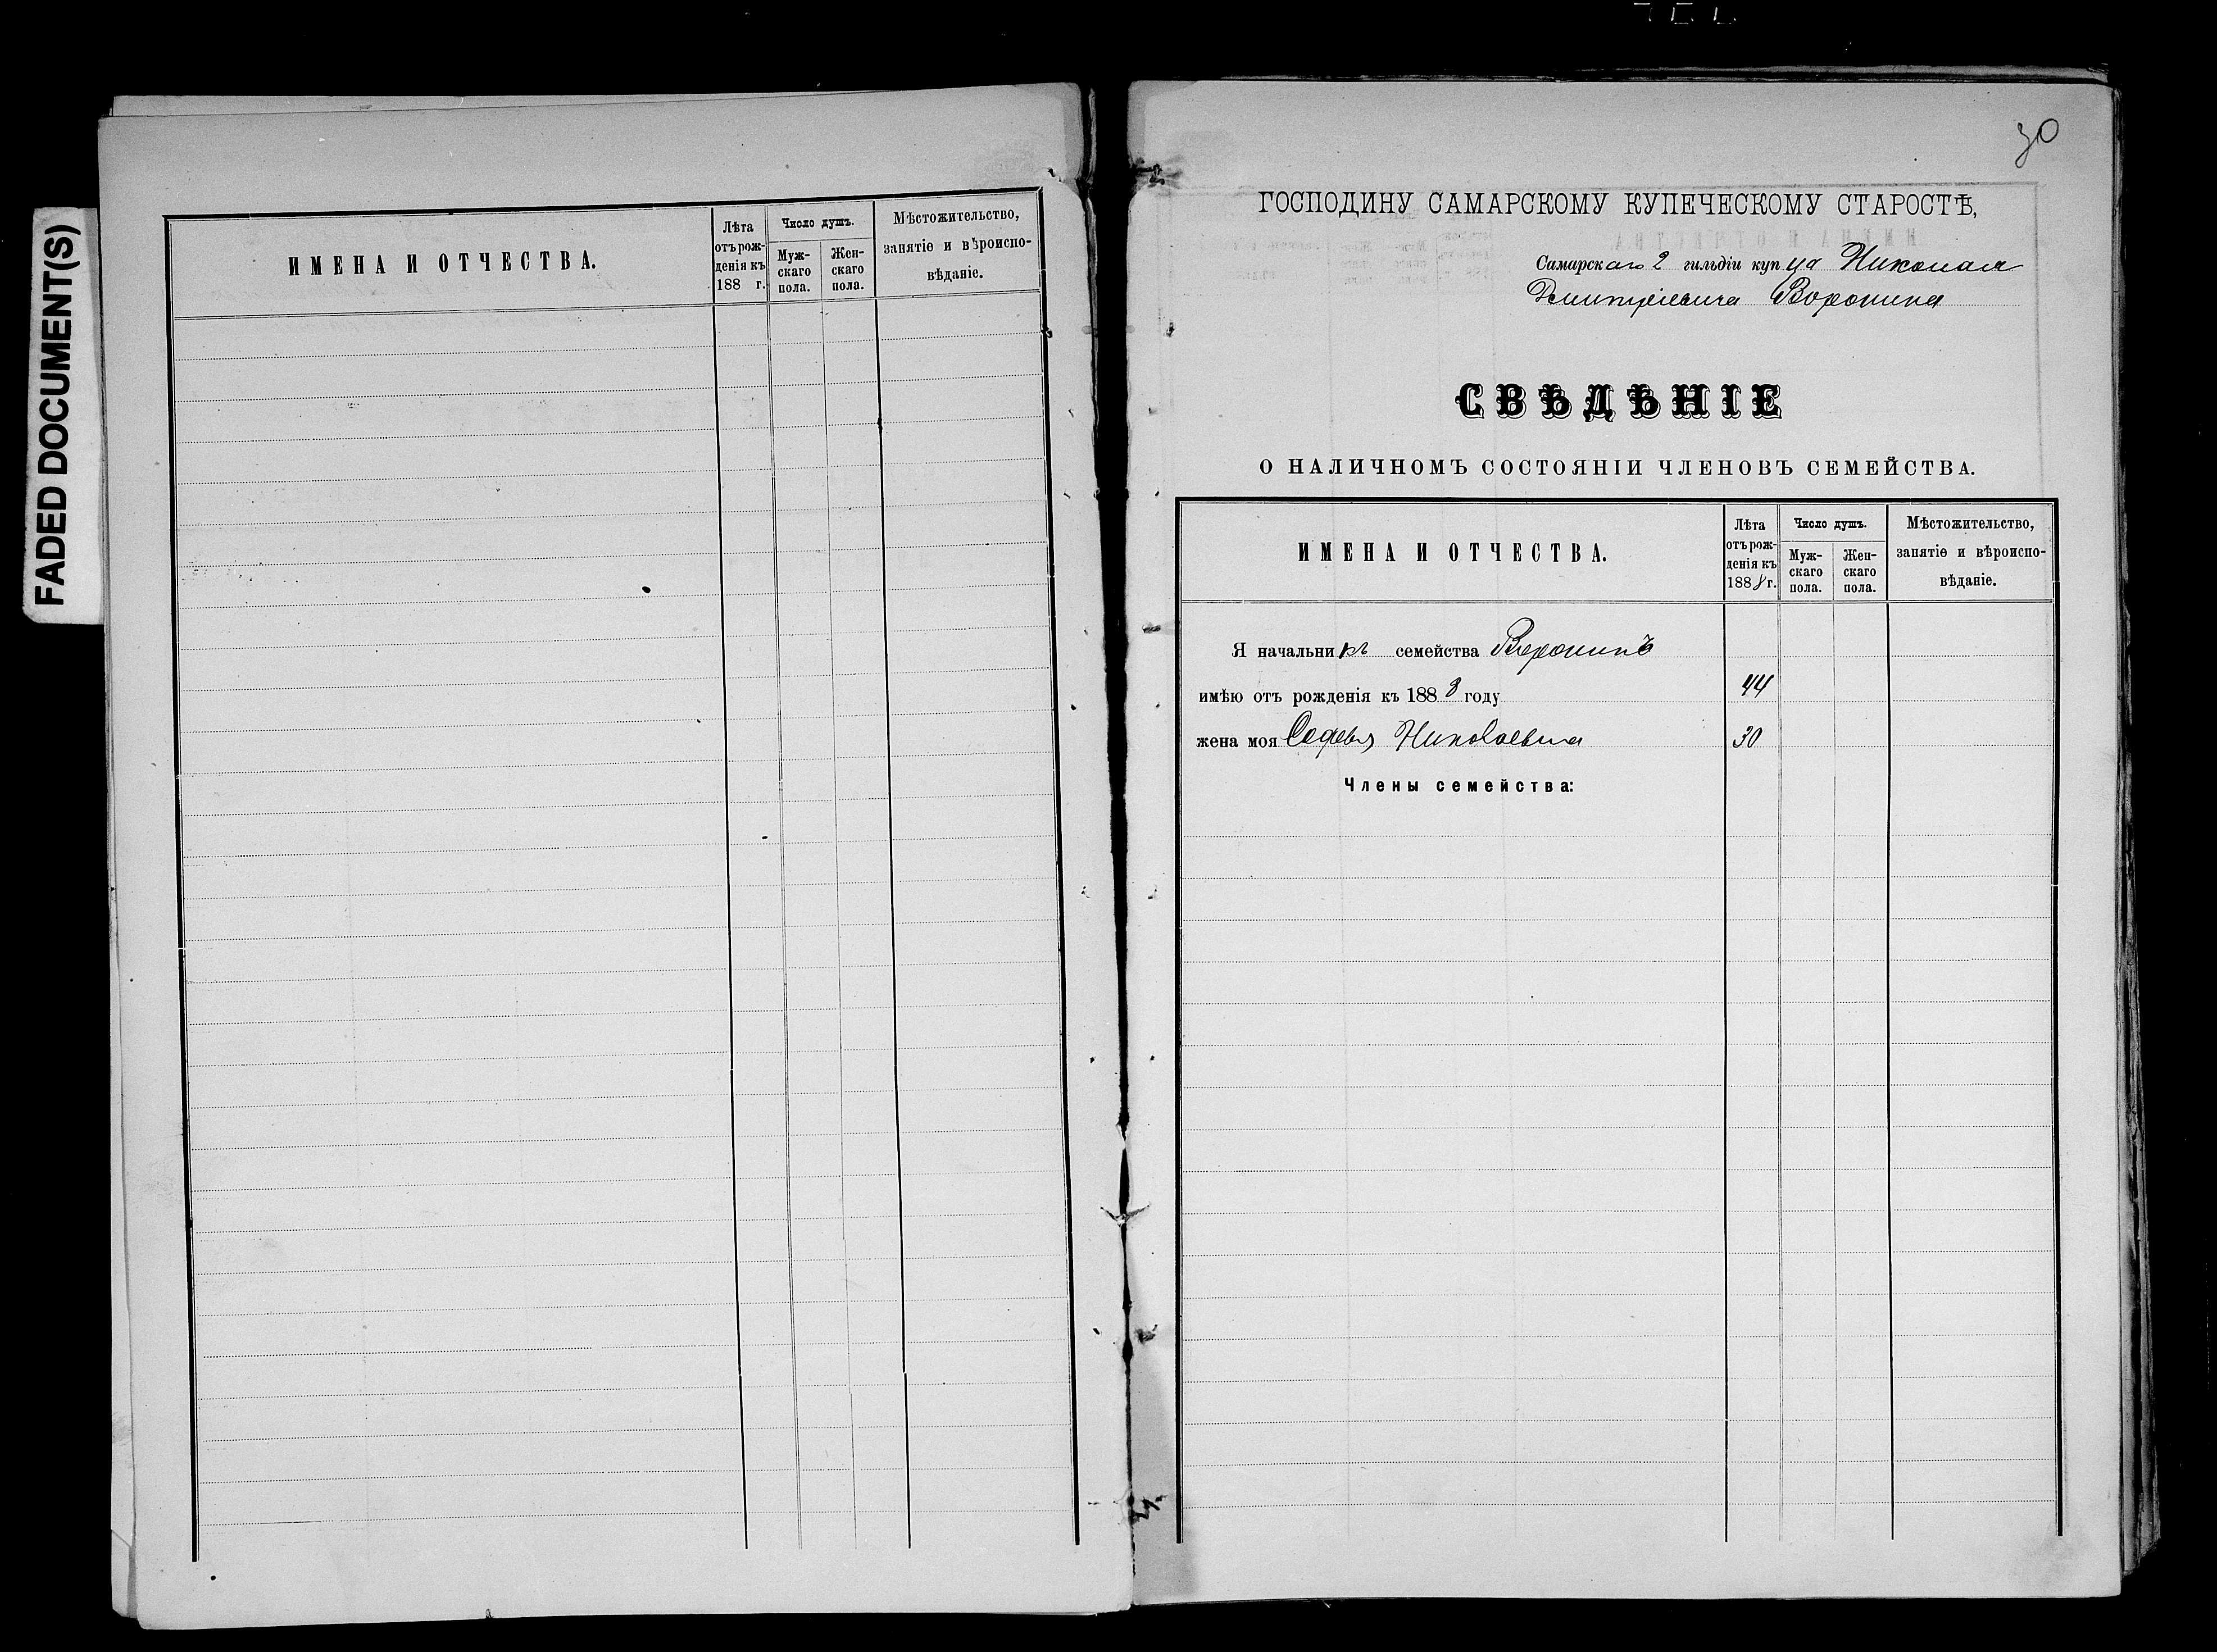 FADED DOCUMENT(S)
ИМЕНА И ОТЧЕСТВА.
Лѣта
отъ рож-
денія къ
188 г.
Число душъ.
Муж-
скаго
пола.
Жен-
скаго
пола.
Мѣстожительство,
занятіе и вѣроиспо-
вѣданіе.
30
ГОСПОДИНУ САМАРСКОМУ КУПЕЧЕСКОМУ СТАРОСТѢ,
Самарскаго 2 гильдіи купца Николая
Дмитріевича Воронина
СВѢДѢНІЕ
О НАЛИЧНОМЪ СОСТОЯНІИ ЧЛЕНОВЪ СЕМЕЙСТВА.
ИМЕНА И ОТЧЕСТВА.
Лѣта
отъ рож-
денія къ
1888 г.
Число душъ.
Муж-
скаго
пола.
Жен-
скаго
пола.
Мѣстожительство,
занятіе и вѣроиспо-
вѣданіе.
Я начальникъ семейства Воронинъ
имѣю отъ рожденія къ 1888 году 44
жена моя Софья Николаевна 30
Члены семейства: